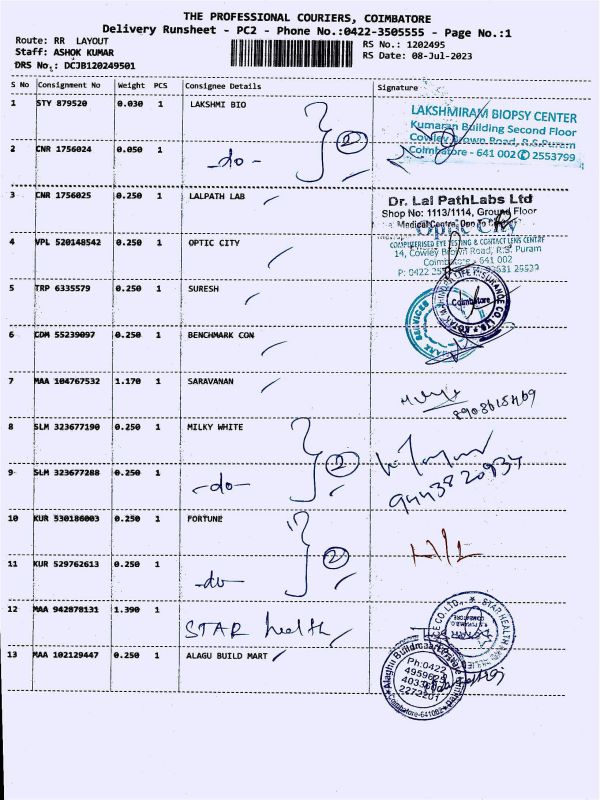 THE PROFESSIONAL COURIERS, COIMBATORE
Delivery Runsheet - PC2 - Phone No.:0422-3505555 - Page No.:1
Route: RR LAYOUT
RS No.: 1202495
Staff: ASHOK KUMAR
RS Date: 08-Jul-2023
DRS No.: DCJB120249501
S No Consignment No Weight PCS Consignee Details Signature
1 STY 879520 0.030 1 LAKSHMI BIO
LAKSHMIRAM BIOPSY CENTER
Kumaran Building Second Floor
Cowley Brown Road, R.S.Puram
Coimbatore - 641 002 2553799
2 CNR 1756024 0.050 1
-do- 2
3 CNR 1756025 0.250 1 LALPATH LAB
Dr. Lal PathLabs Ltd
Shop No: 1113/1114, Ground Floor
Medical Centre,
Optic City
4 VPL 520148542 0.250 1 OPTIC CITY
COMPUTERISED EYE TESTING & CONTACT LENS CENTRE
14, Cowley Brown Road, R.S. Puram
Coimbatore - 641 002
P: 0422
5 TRP 6335579 0.250 1 SURESH
KOTAK MAHINDRA LIFE INSURANCE CO. LTD.
Coimbatore
SERVICES
6 COM 55239097 0.250 1 BENCHMARK CON
7 MAA 104767532 1.170 1 SARAVANAN
8 SLM 323677190 0.250 1 MILKY WHITE
9 SLM 323677288 0.250 1
-do- 2
9443820937
10 KUR 530186003 0.250 1 FORTUNE
11 KUR 529762613 0.250 1
-do- 2
12 MAA 942878131 1.390 1
STAR health
STAR HEALTH
13 MAA 102129447 0.250 1 ALAGU BUILD MART
Alaghu Buildmart Private Limited
Ph:0422
4959629
2272201
Coimbatore-641002